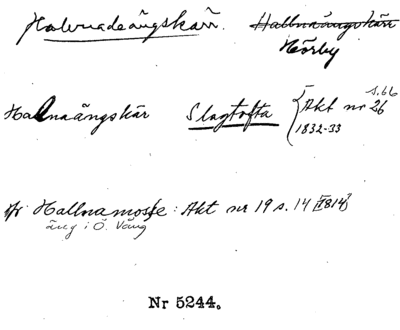 Halvnadeängskärr. Hallnaängskärr
Hörby
Halnaängskär Slagtofta Akt nr 26 s. 66
1832-33
jfr Hallnamosse: Akt nr 19 s. 14 [1814]
äng i Ö. Väng
Nr 5244.